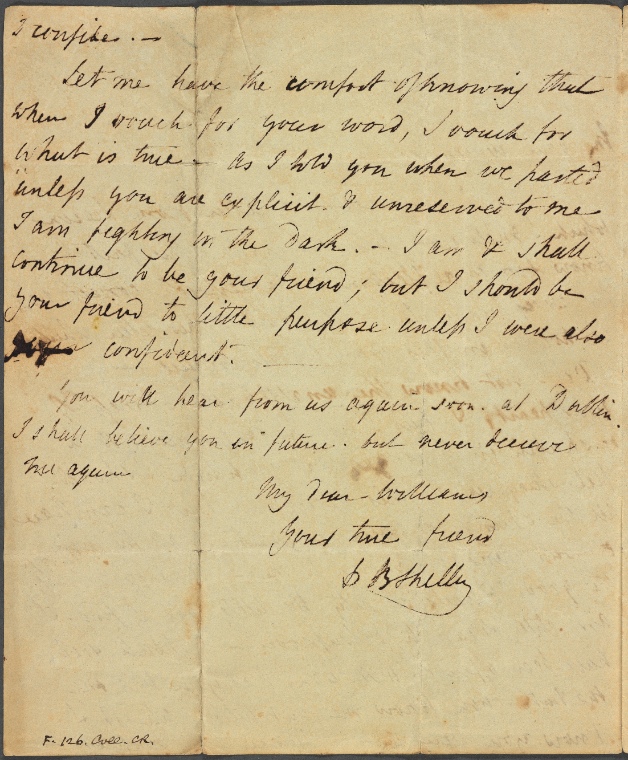 I confide. —
Let me have the comfort of knowing that
when I vouch for your word, I vouch for
what is true – As I told you when we parted
unless you are explicit & unreserved to me
I am fighting in the dark. – I am & shall
continue to be your friend; but I should be
your friend to little purpose unless I were also
your confidant.
You will hear from us again soon. at Dublin.
I shall believe you in future. but never deceive
me again
My dear Williams
Your true friend
P B Shelley
F. 126. Coll. CR.